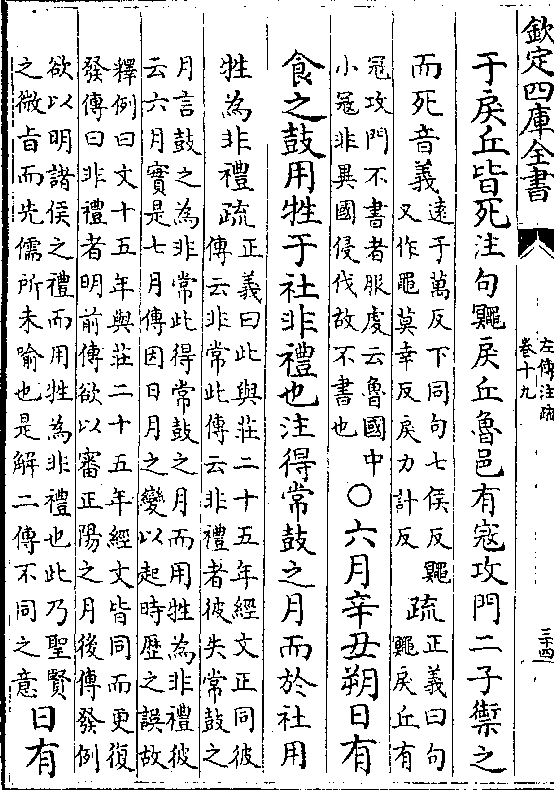 欽定四庫全書
左傳注疏
卷十九
三十四
于戾丘皆死注句鼆戾丘魯邑有寇攻門二子禦之
而死音義
遠于萬反下同句七侯反鼆
又作黽莫幸反戾力計反
疏
正義曰句
鼆戾丘有
寇攻門不書者服虔云魯國中
小寇非異國侵伐故不書也
○六月辛丑朔日有
食之鼓用牲于社非禮也注得常鼓之月而於社用
牲為非禮疏
正義曰此與莊二十五年經文正同彼
傳云非常此傳云非禮者彼失常鼓之
月言鼓之為非常此得常鼓之月而用牲為非禮彼
云六月實是七月傳因日月之變以起時歴之誤故
釋例曰文十五年與莊二十五年經文皆同而更復
發傳曰非禮者明前傳欲以審正陽之月後傳發例
欲以明諸侯之禮而用牲為非禮也此乃聖賢
之微旨而先儒所未喻也是解二傳不同之意
日有